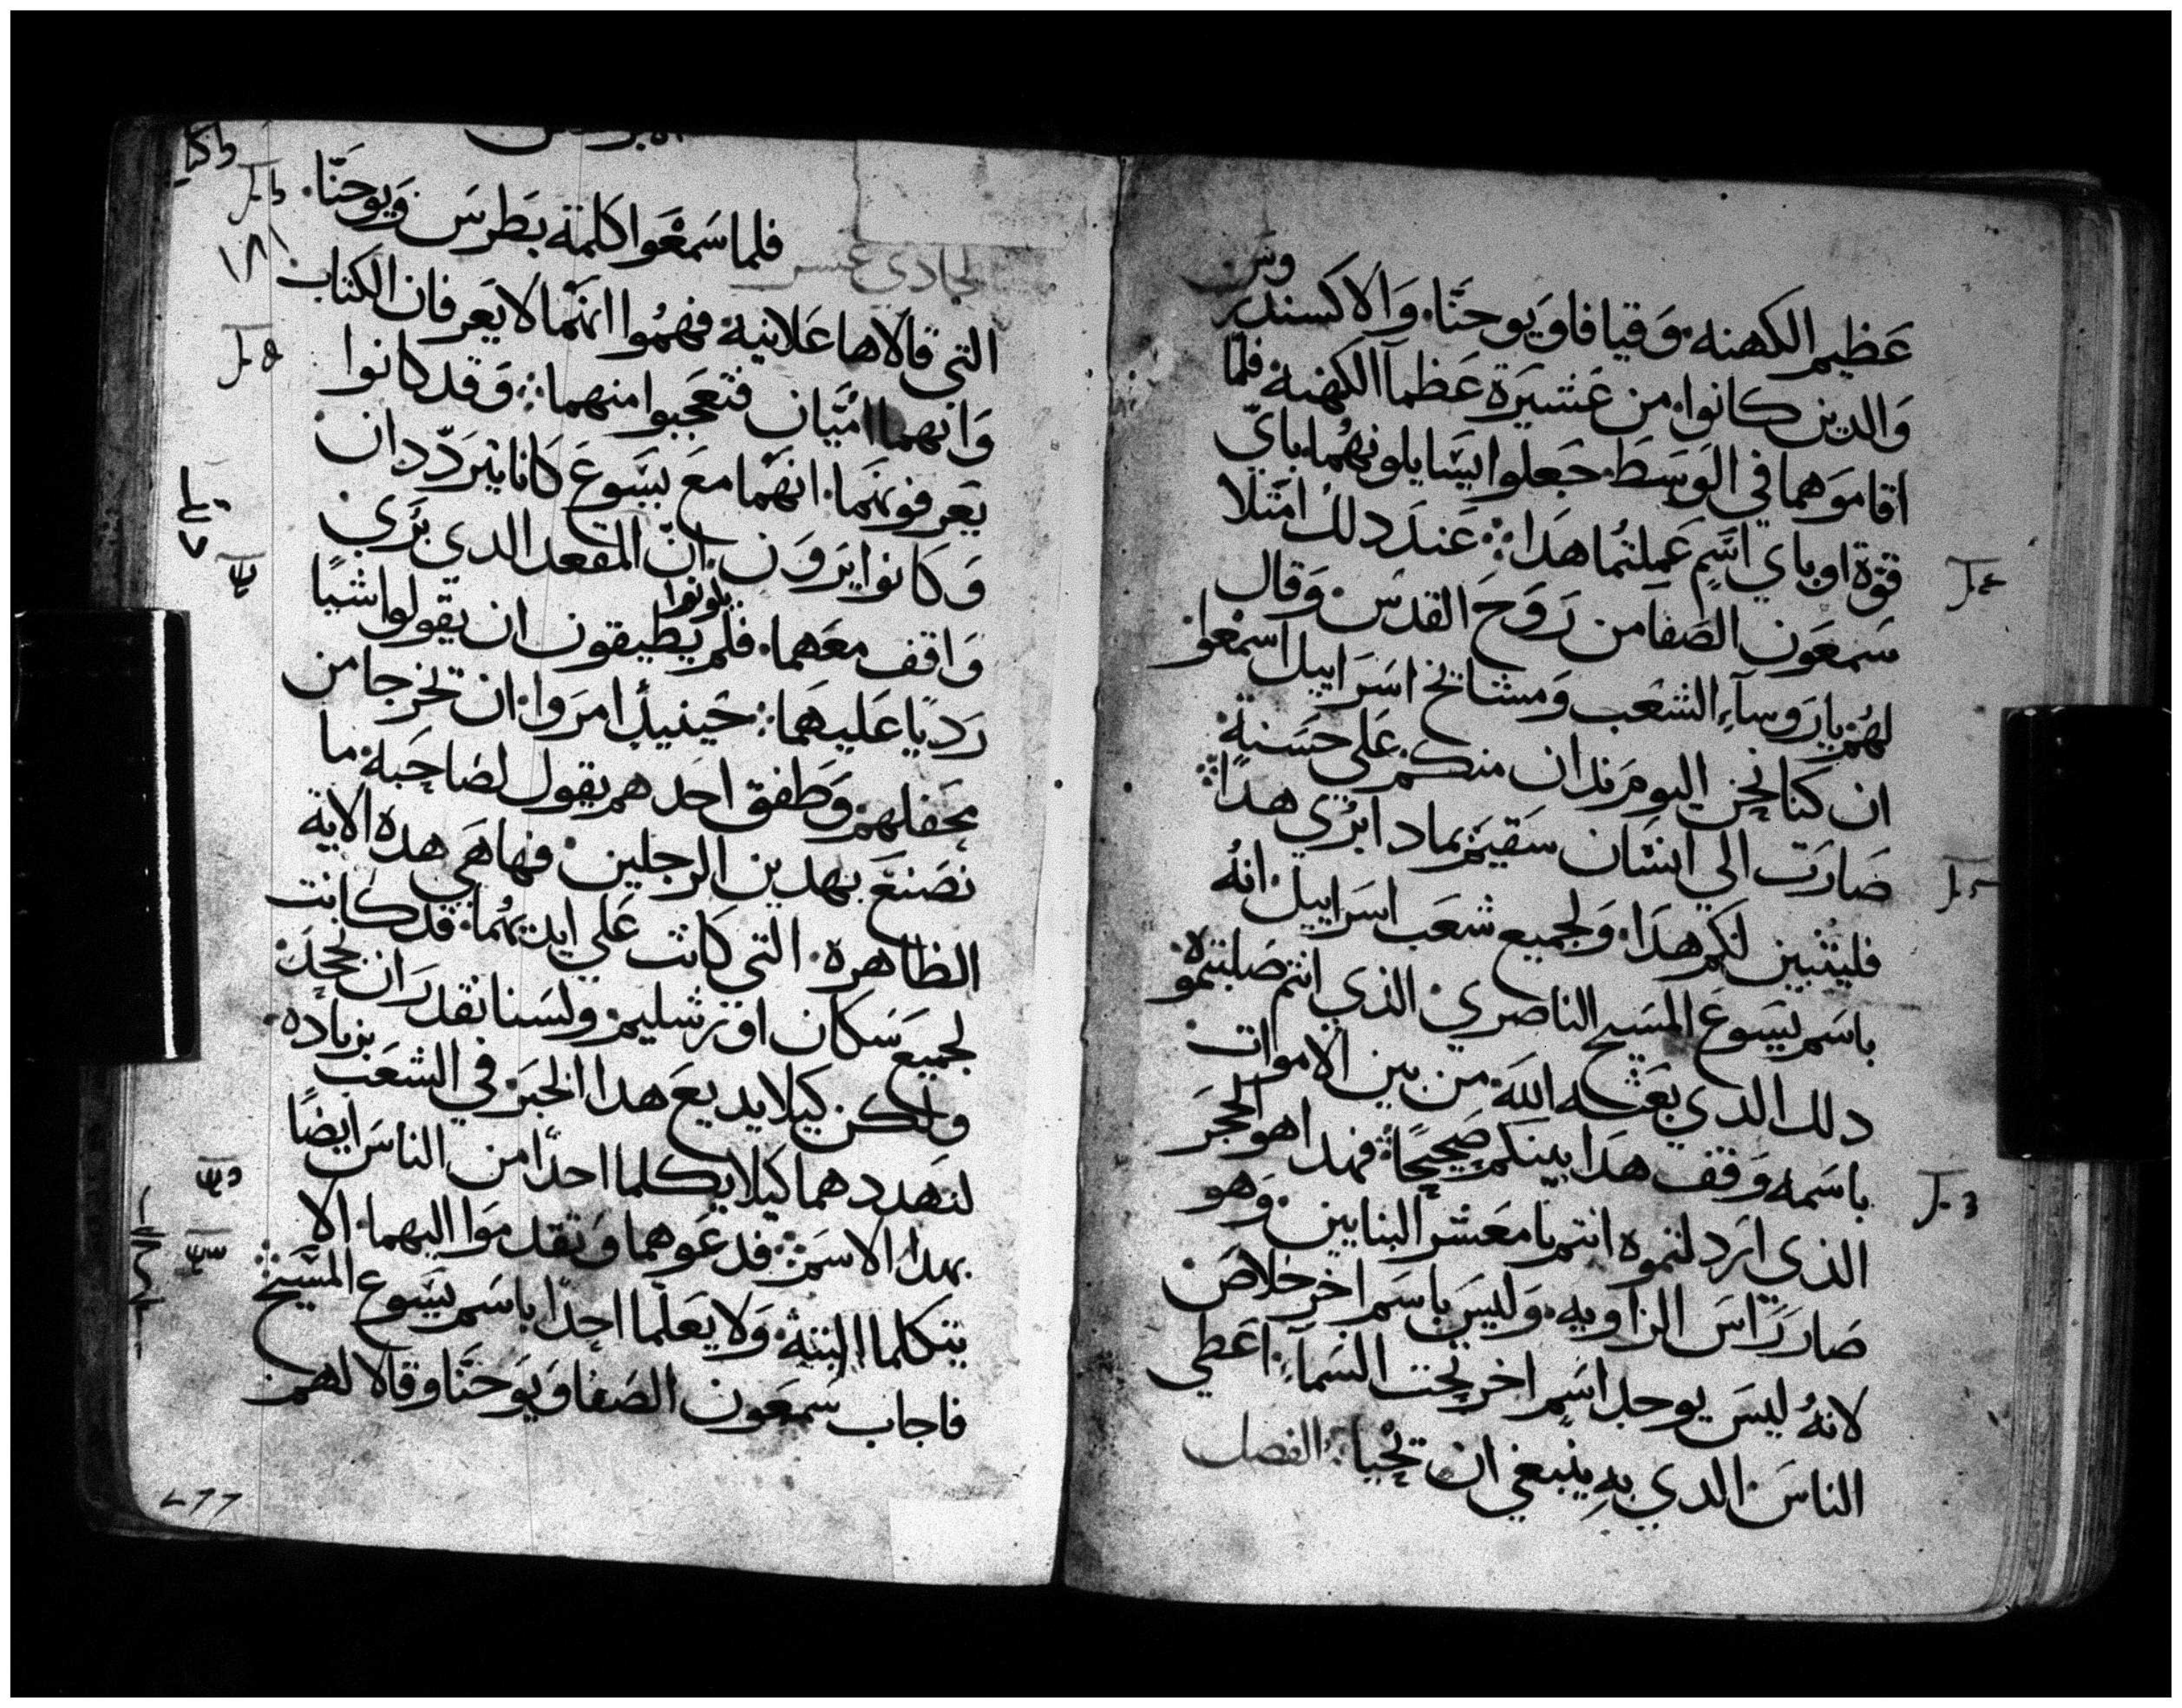 وس
عظيم الكهنه. وقيافا ويوحنا. والاكسندر
والدين كانوا من عشيرة عظما الكهنه فلما
اقاموهما في الوسط جعلوا يسايلونهما باي
قوة او باي اسم عملتما هدا عند دلك امتلا
سمعون الصفا من روح القدس. وقال
لهم يا روساء الشعب ومشايخ اسراييل اسمعوا
ان كنا نحن اليوم ندان منكم على حسنة
صارت الي انسان سقيم بمادا ابري هدا
فليتبين لكم هدا. ولجميع شعب اسراييل انه
باسم يسوع المسيح الناصري الذي انتم صلبتموه
دلك الدي بعثه الله من بين الاموات
باسمه وقف هدا بينكم صحيحًا فهدا هو الحجر
الذي اردلتموه انتم يا معشر البنايين وهو
صار راس الزاويه. وليس باسم اخر خلاص
لانه ليس يوجد اسم اخر تحت السماء. اعطي
الناس. الدي به ينبغي ان نحيا الفصل
الحادي عشر فلما سمعوا كلمة بطرس ويوحنا.
التي قالاها علانية. فهموا انهما لا يعرفان الكتاب
وانهما اميان فتعجبوا منهما وقد كانوا
يعرفونهما. انهما مع يسوع كانا يترددان
وكانوا يرون. ان المقعد الدي بري
واقف معهما. فلم يطيقون ان يقولوا شيا
رديا عليهما حينيد امروا. ان تخرجا من
محفلهم وطفق احدهم يقول لصاحبه ما
نصنع بهدين الرجلين. فها هي هده الاية
الظاهرة. التي كانت على ايديهما. قد كانت
لجميع سكان اورشليم ولسنا نقدر ان نجحد
ولكن كيلا يديع هدا الخبر في الشعب بزياده.
لنهددهما كيلا يكلما احدًا من الناس ايضًا
بهدا الاسم فدعوهما وتقدموا اليهما. الا
يتكلما البتة ولا يعلما احدًا باسم يسوع المسيح
فاجاب سمعون الصفا ويوحنا وقالا لهم